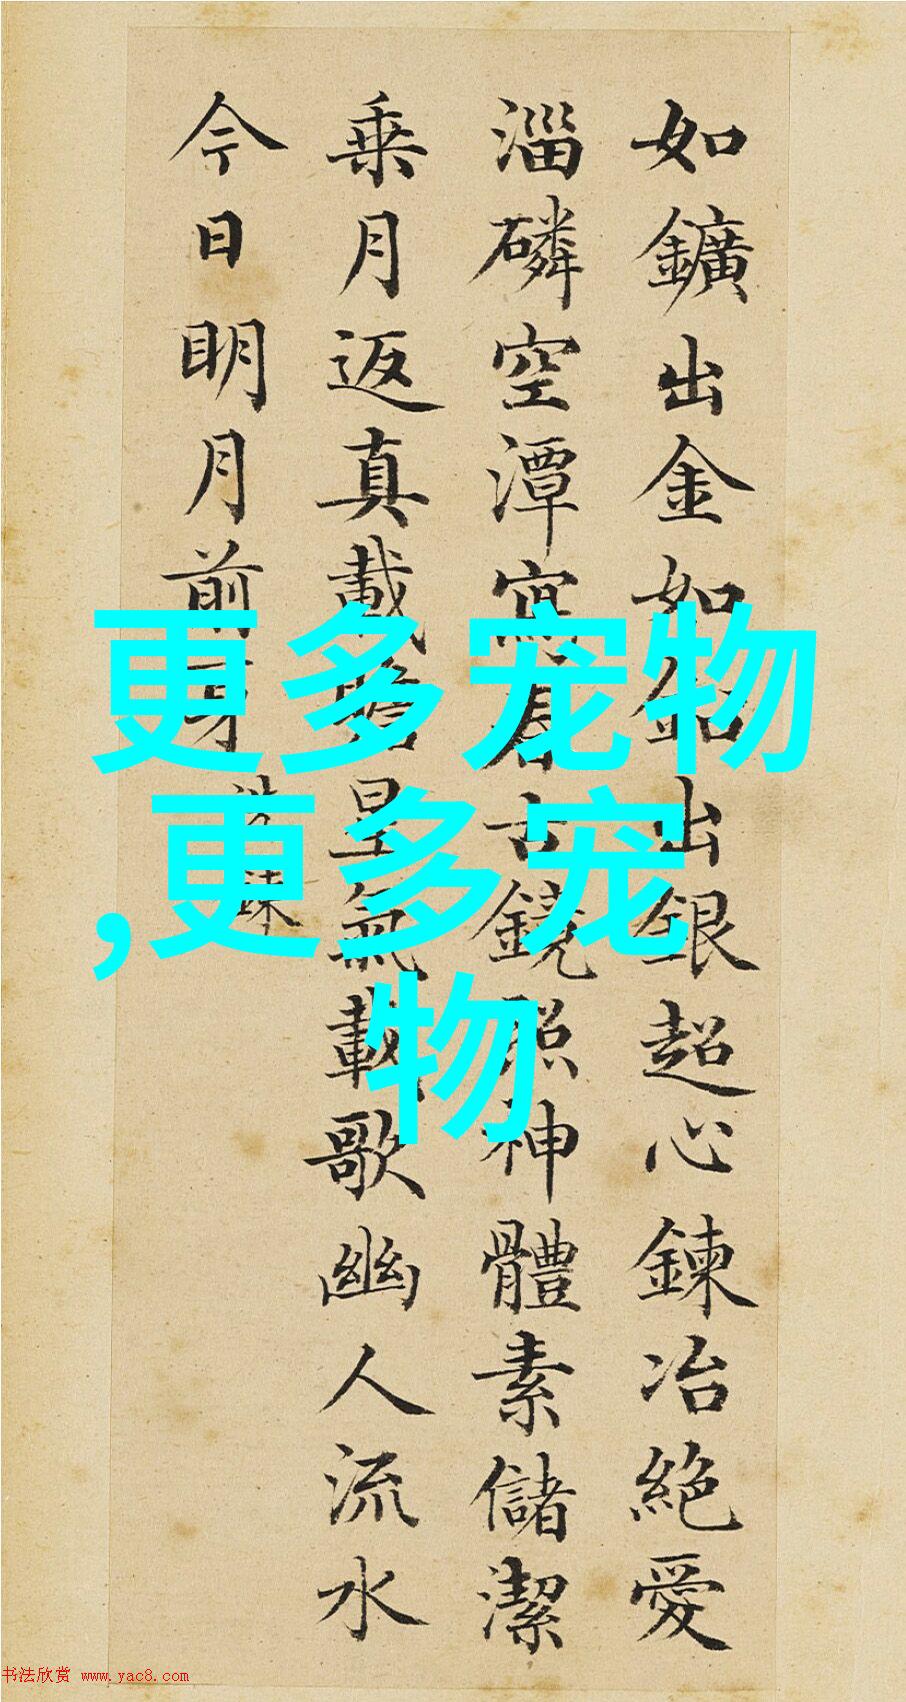 如鑛出金如鉛出銀超心鍊冶絕愛
淄磷空潭寫春古鏡照神體素儲潔
乘月返真載瞻星氣載歌幽人流水
今日明月前身
洗鍊
更多宠物
,更多宠
物
书法欣赏 www.yac8.com